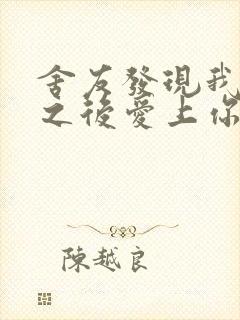 舍友發現我
之後愛上你
陳越良